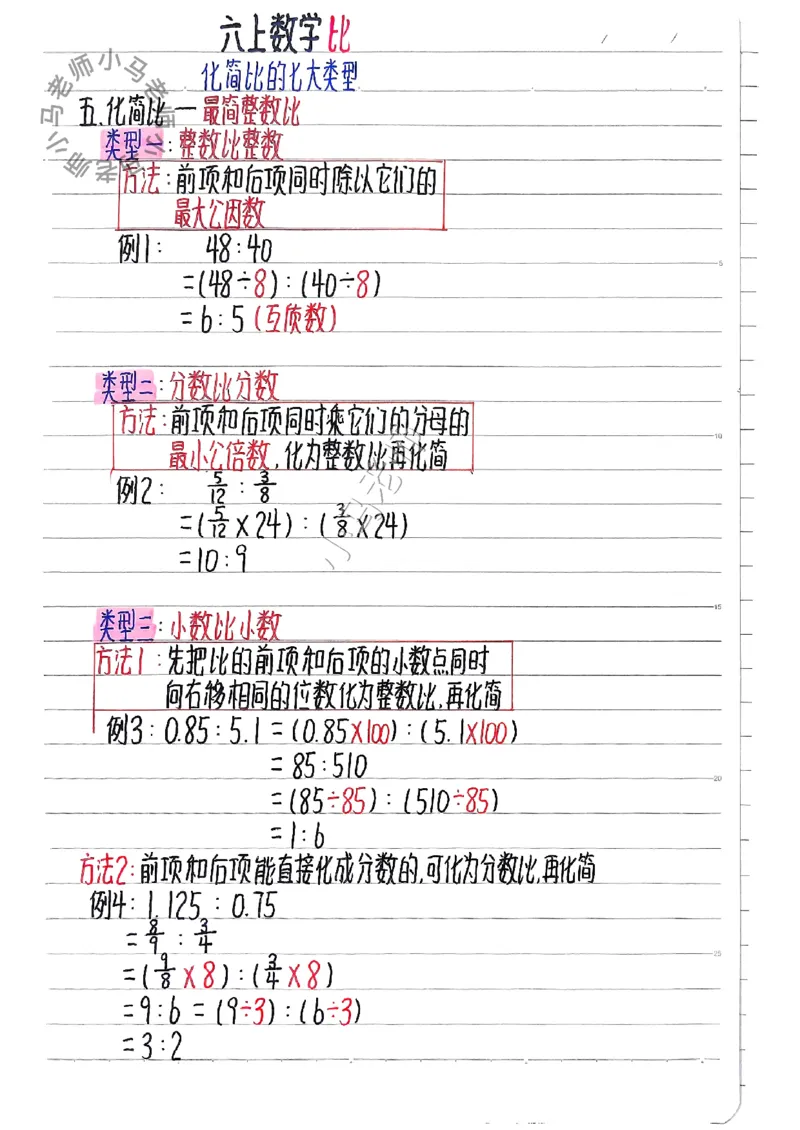 六上数学比
化简比的七大类型
五.化简比一最简整数比
类型一:整数比整数
方法:前项和后项同时除以它们的
最大公因数
例1: 48:40
=(48÷8):(40÷8)
=6:5(互质数)
类型二:分数比分数
方法:前项和后项同时乘它们的分母的
最小公倍数,化为整数比再化简
例2: 5/12 : 3/8
=(5/12×24):(3/8×24)
=10:9
类型三:小数比小数
方法1:先把比的前项和后项的小数点同时
向右移相同的位数化为整数比,再化简
例3:0.85:5.1=(0.85×100):(5.1×100)
=85:510
=(85÷85):(510÷85)
=1:6
方法2:前项和后项能直接化成分数的,可化为分数比,再化简
例4:1.125:0.75
=8/9:3/4
=(9/8×8):(3/4×8)
=9:6=(9÷3):(6÷3)
=3:2
小马老师小马老师小马老师
小马老师
5
10
15
20
25